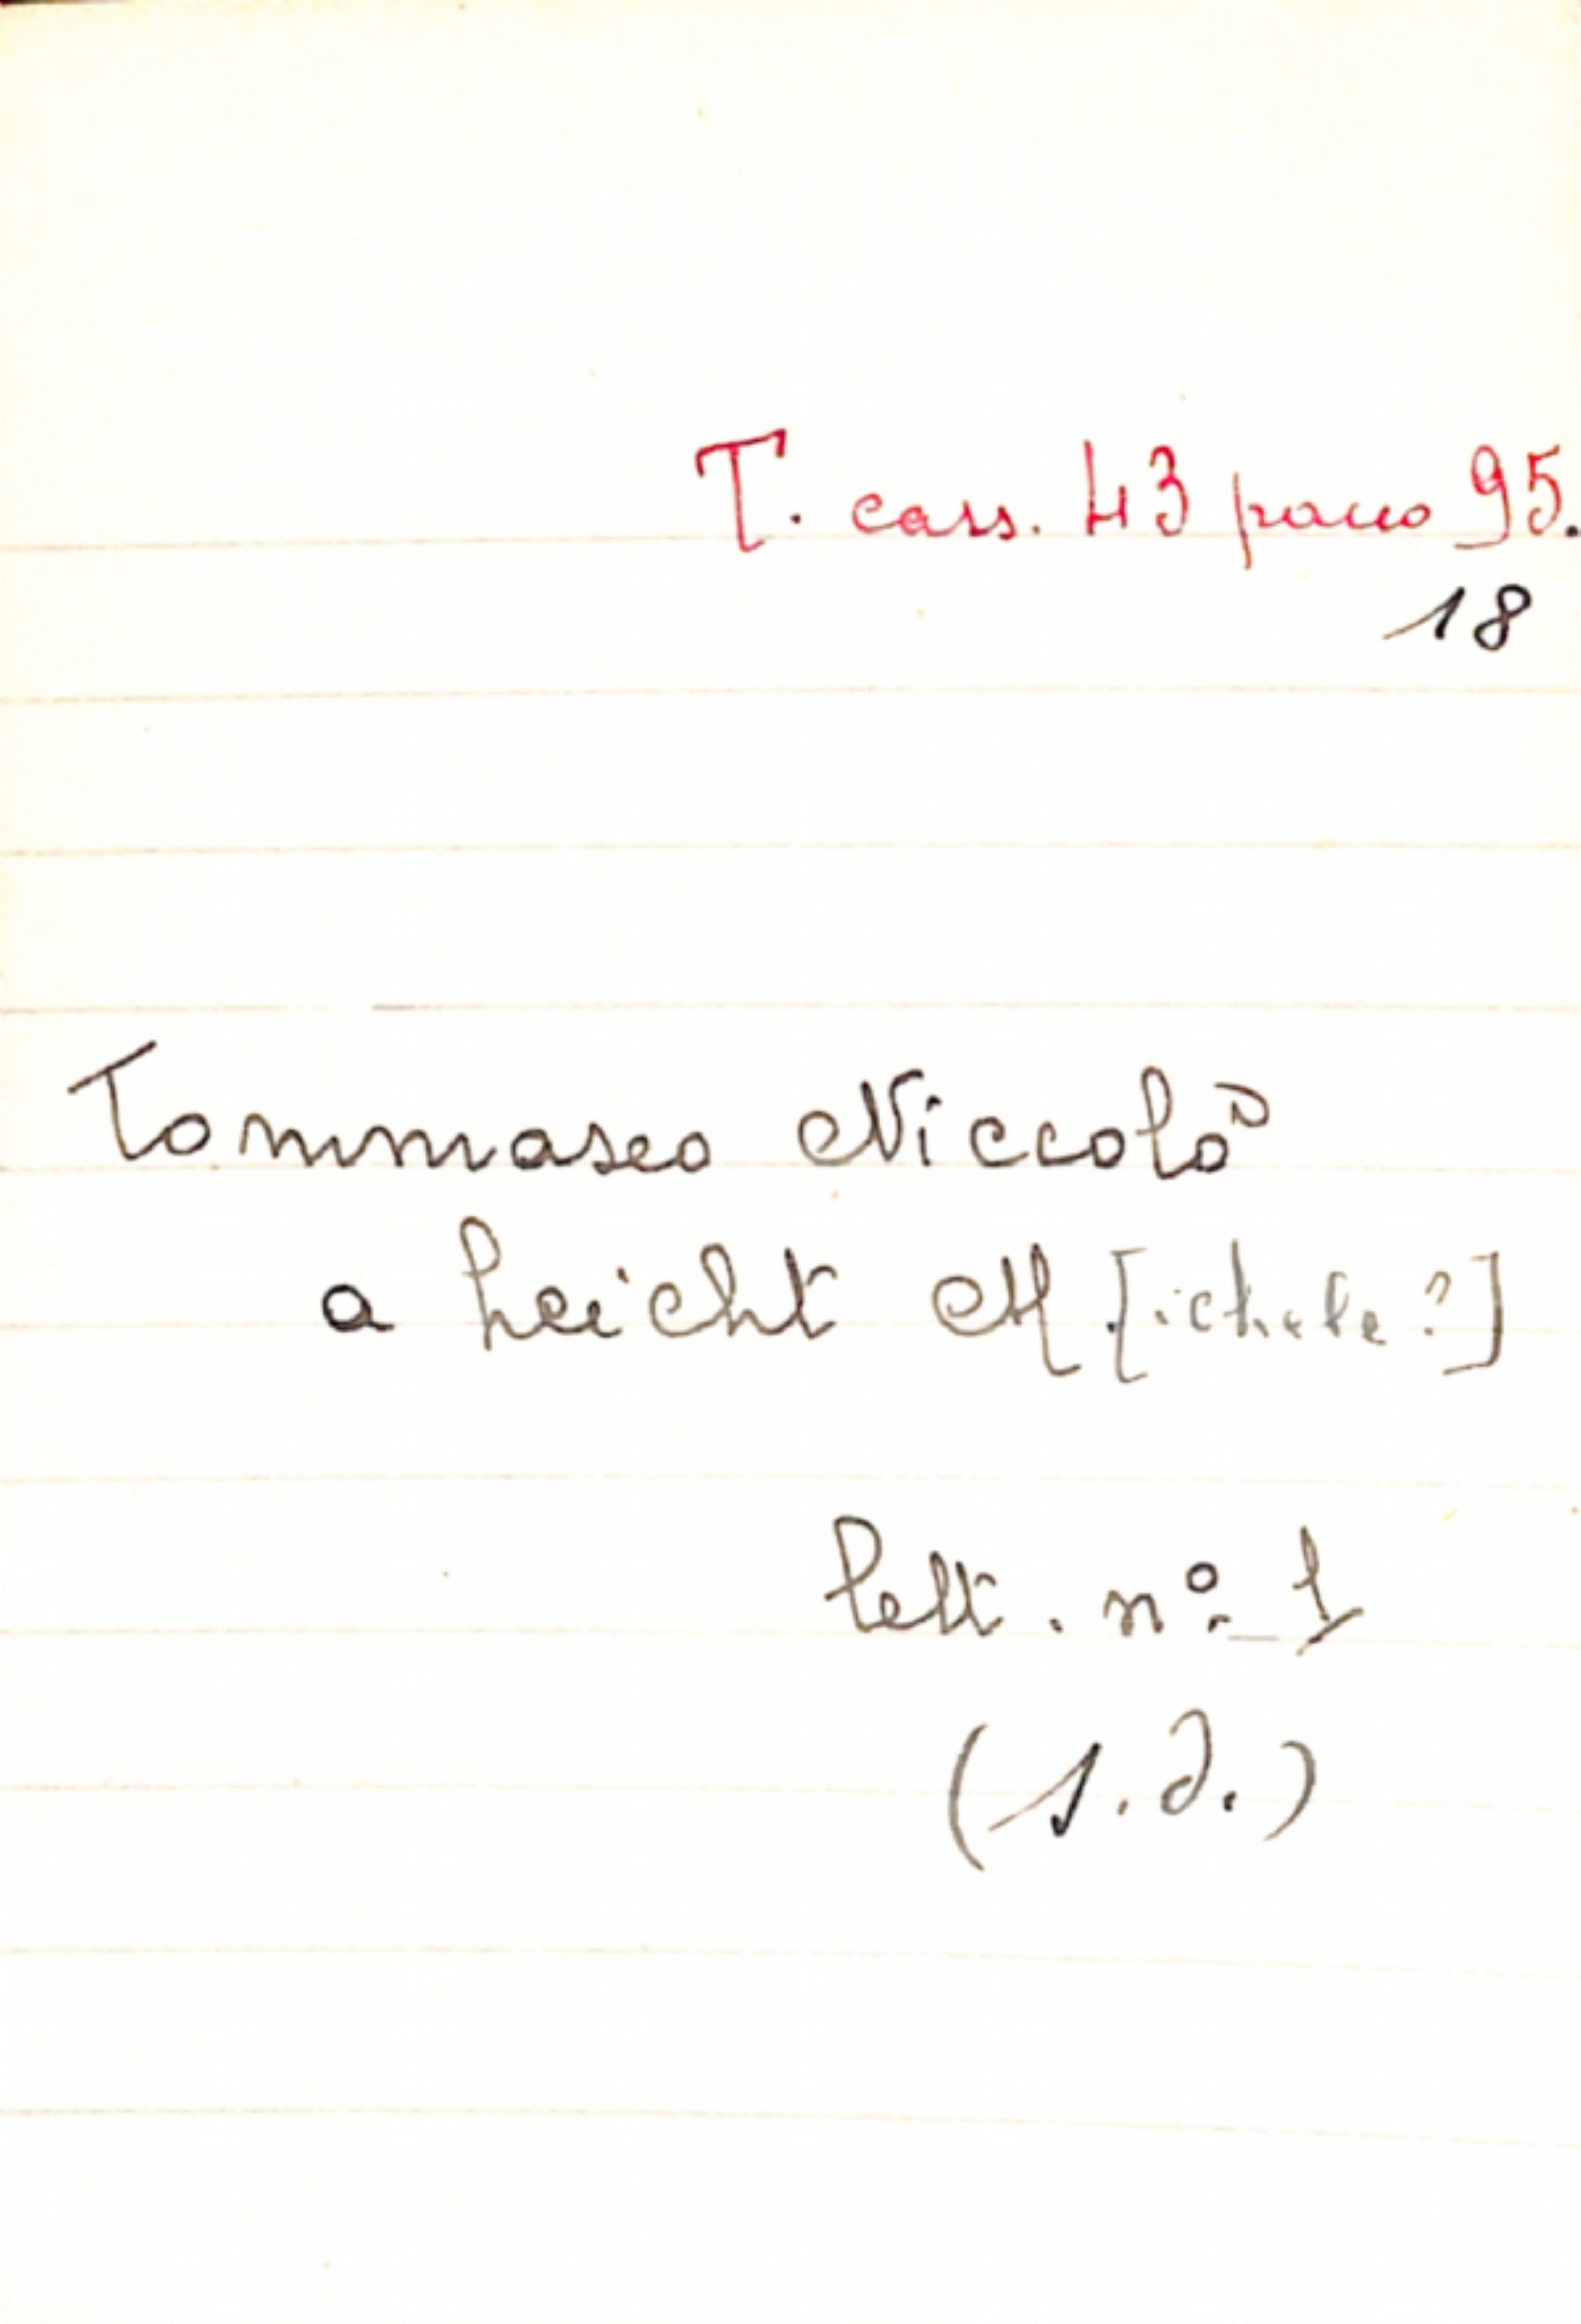 T. cass. 43 pacco 95.
18
Tommaseo Niccolò
a Leicht M [ichele?]
lett. nº 1
(s.d.)